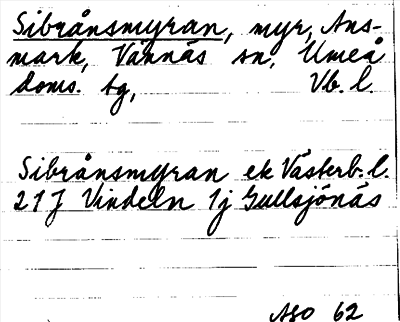 Sibrånsmyran, myr, Ans-
mark, Vännäs sn, Umeå
doms. tg, Vb. l.
Sibrånsmyran ek Västerb. l.
21J Vindeln 1j Gullsjönäs
ASO 62